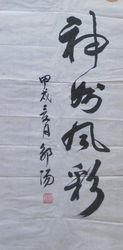 神州风彩
甲戌三月 邹汤